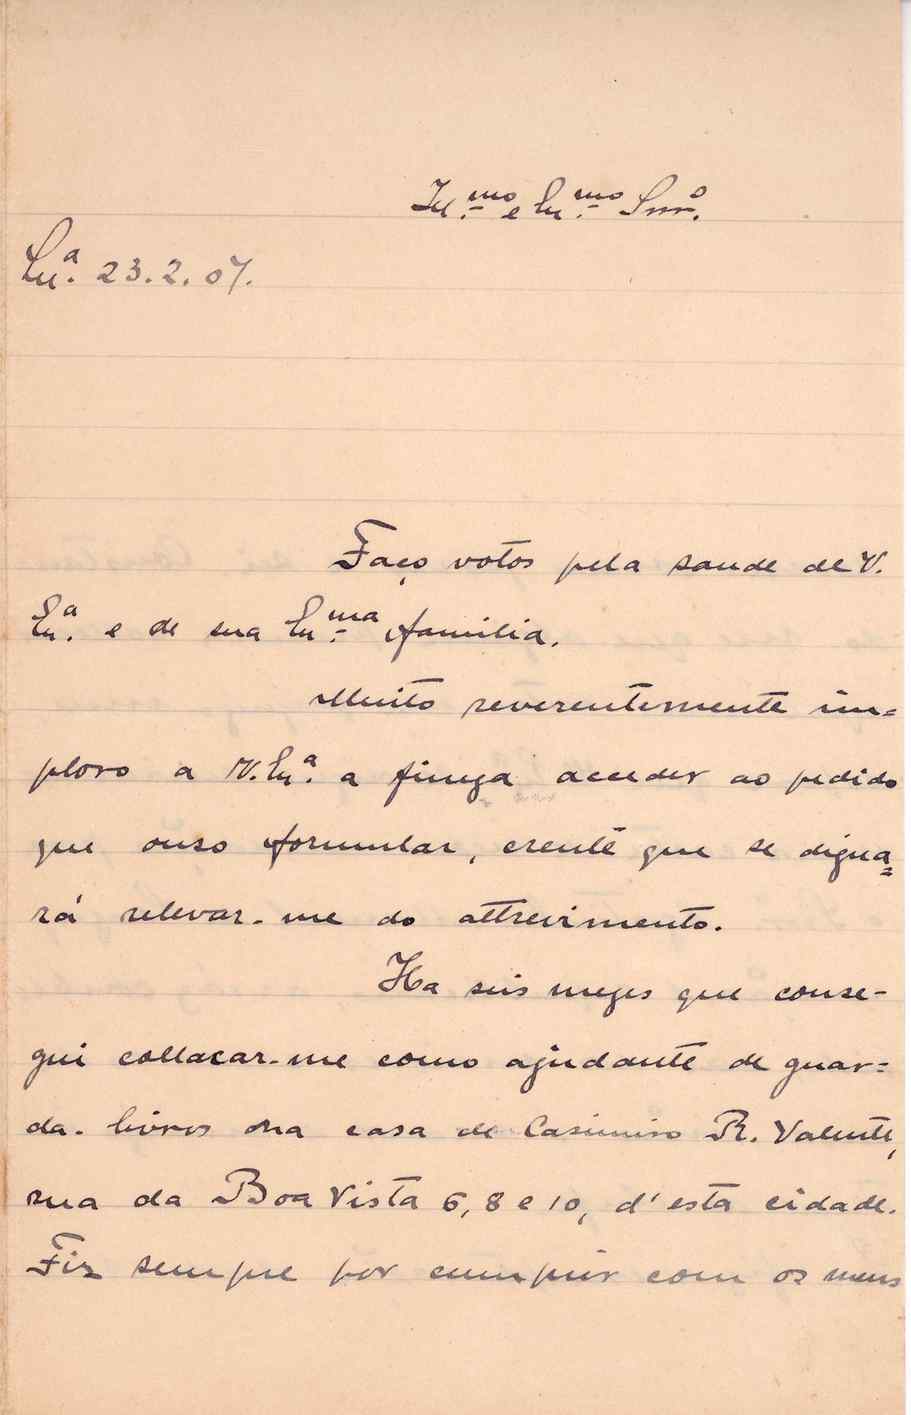 Ill.mo e Ex.mo Snr.o
Lx.a 23.2.07.
Faço votos pela saude de V.
Ex.a e de sua Ex.ma familia.
Muito reverentemente im=
ploro a V. Ex.a a fineza acceder ao pedido
que ouso formular, crente que se digna=
rá relevar-me do attrevimento.
Ha seis mezes que conse-
gui collacar-me como ajudante de guar=
da-livros na casa de Casimiro R. Valente,
rua da Boa Vista 6, 8 e 10, d'esta cidade.
Fiz sempre por cumprir com os meus